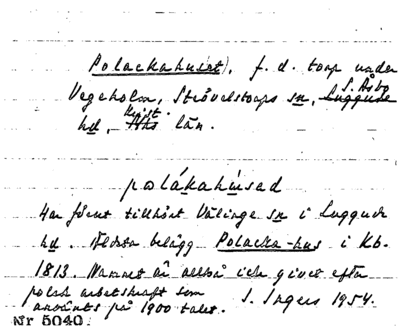 Polackahuset), f. d. torp under
S. Åsbo
Vegeholm, Strövelstorps sn, Luggude
Krist.
hd, Mhs län.
polákahùsad
Har förut tillhört Välinge sn i Luggude
hd. Äldsta belägg Polacka-hus i Kb.
1813. Namnet är alltså icke givet efter
polsk arbetskraft som
använts på 1900 talet. S. Ingers 1954.
Nr 5040.